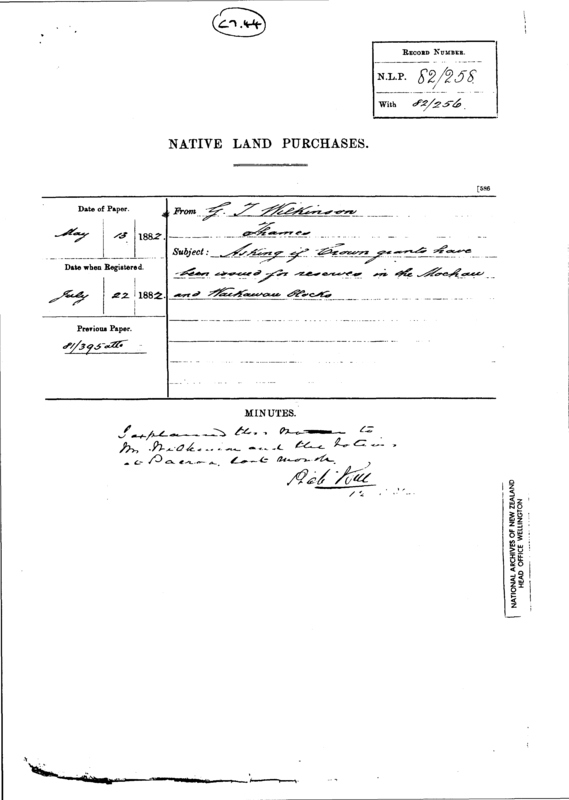 C7.44
RECORD NUMBER.
N.L.P. 82/258
With 82/256.
NATIVE LAND PURCHASES.
[586
Date of Paper.
May 13 1882.
Date when Registered.
July 22 1882.
Previous Paper.
81/395
From G. T. Wilkinson
Thames
Subject: Asking if Crown grants have
been issued for reserves in the Moehau
and Waikawau Blocks
MINUTES.
I explained this to
Mr Wilkinson and the Natives
at Paeroa last month.
NATIONAL ARCHIVES OF NEW ZEALAND
HEAD OFFICE WELLINGTON